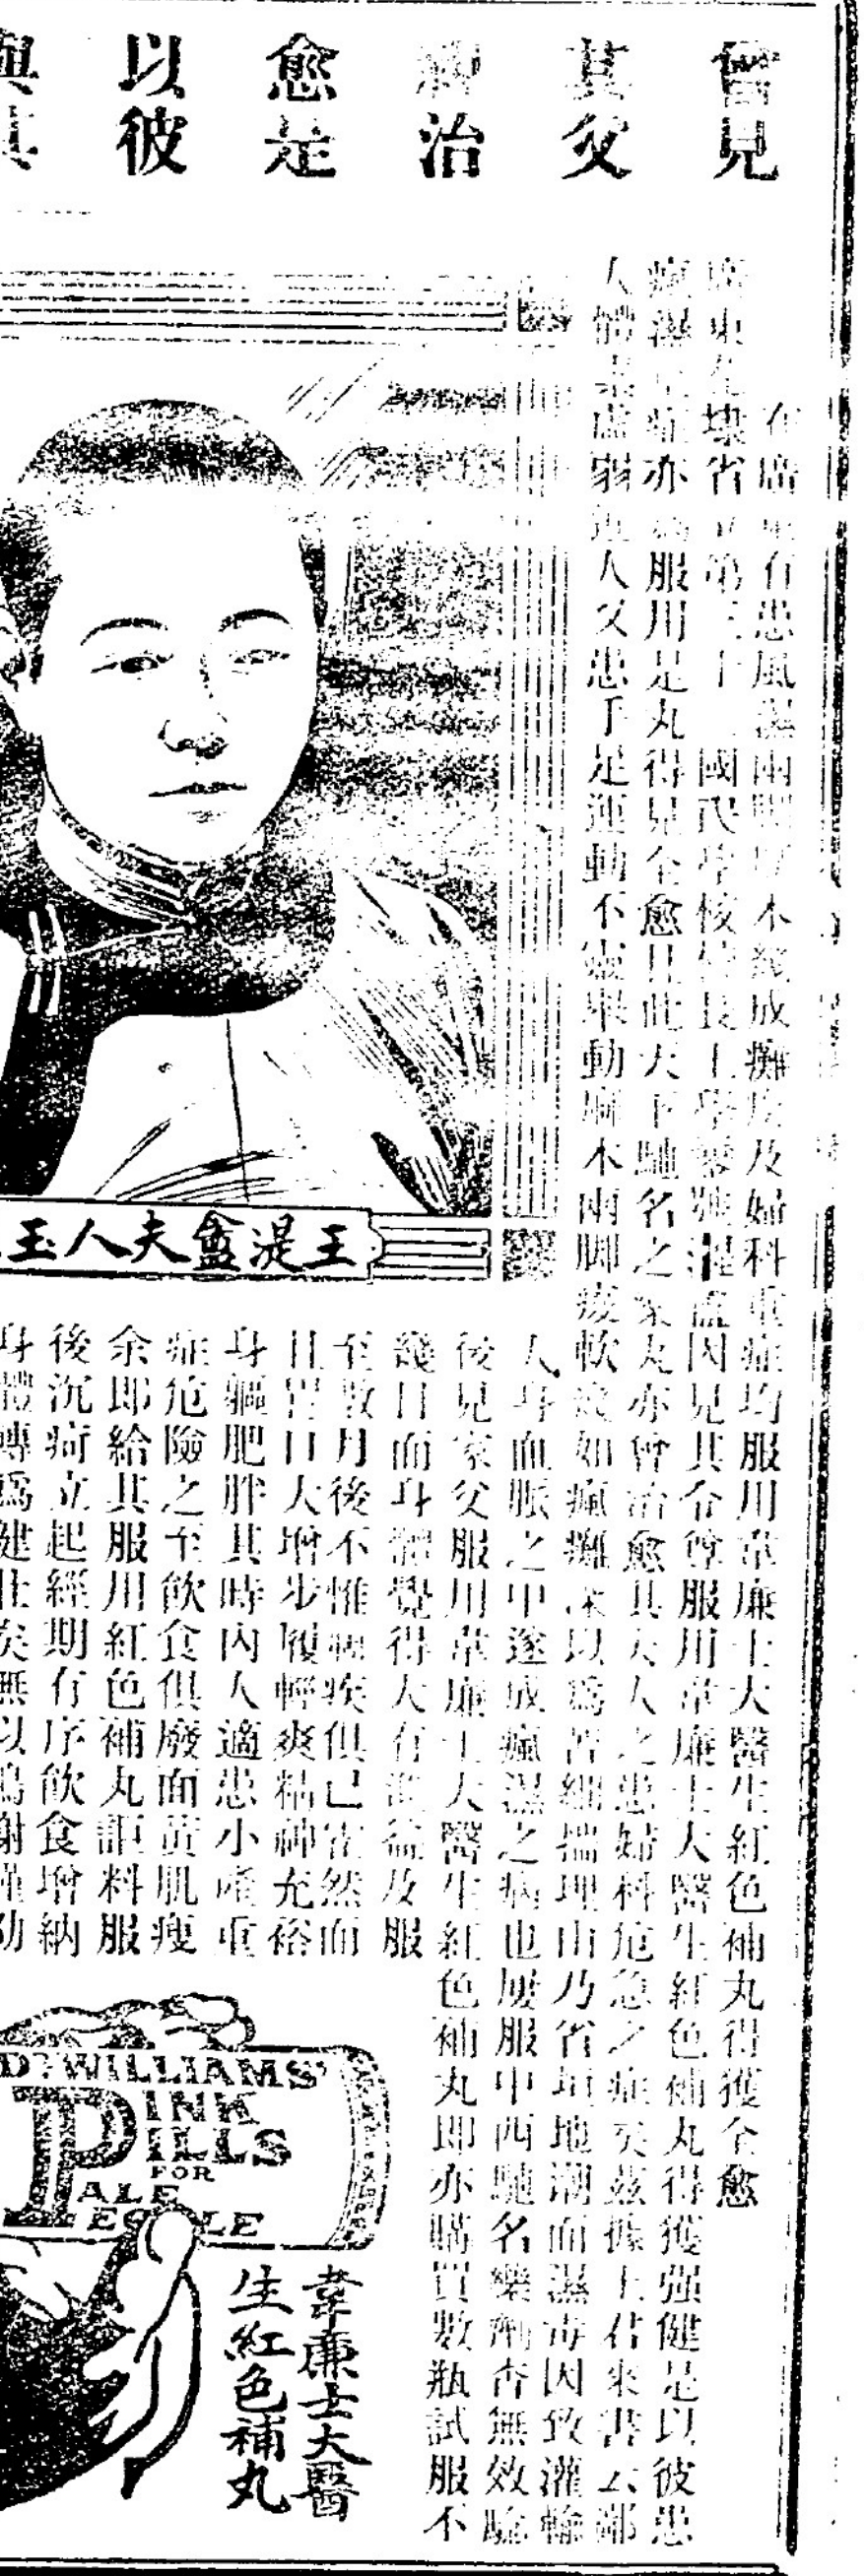 曾見
其父
治
愈是
以彼
與其
在廣東有患風濕兩腳麻木幾成癱瘓及婦科重症均服用韋廉士大醫生紅色補丸得獲全愈
廣東 省立第三十 國民學校校長王學 號湜盦因見其令尊服用韋廉士大醫生紅色補丸得獲强健是以彼患
瘋濕 症亦 服用是丸得見全愈且此天下馳名之 丸亦曾治愈其夫人之患婦科危急之症矣茲據王君來書云鄙
人體素虛弱 人又患手足運動不靈舉動麻木兩脚痠軟 如瘋癱深以爲苦細揣理由乃省垣地潮面濕毒因致灌輸
人身血脈之中遂成瘋濕之病也屢服中西馳名藥劑杳無效驗
後見家父服用韋廉士大醫生紅色補丸即亦購買數瓶試服不
幾日而身體覺得大有 益及服
至數月後不惟 疾俱已霍然而
且胃口大增步履輕爽精神充裕
身軀肥胖其時內人適患小產重
症危險之至飲食俱廢面黃肌瘦
余即給其服用紅色補丸詎料服
後沉疴立起經期有序飲食增納
身體轉爲健壯矣無以鳴謝謹勒
王湜盦夫人玉
DR WILLIAMS'
PINK
PILLS
FOR
PALE
PEOPLE
韋廉士大醫
生紅色補丸